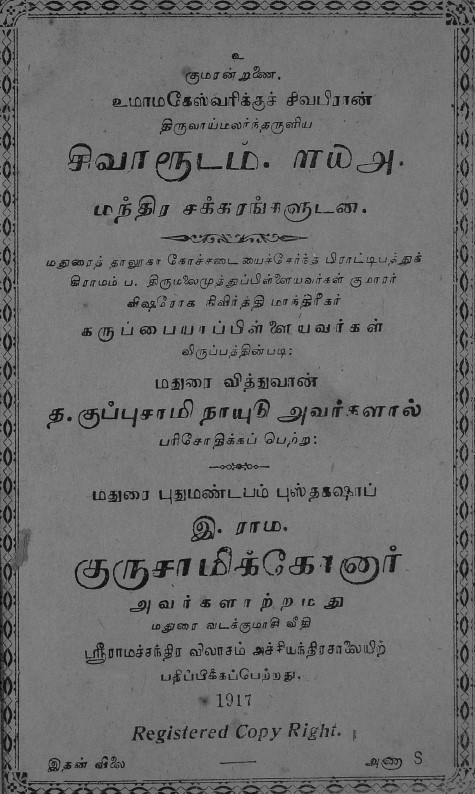 உ
குமரன்றுணை.
உமாமகேஸ்வரிக்குச் சிவபிரான்
திருவாய்மலர்ந்தருளிய
சிவாரூடம். ௱௰அ.
மந்திர சக்கரங்களுடன்.
மதுரைத் தாலூகா கோச்சடையைச்சேர்ந்த பிராட்டிபத்துக்
கிராமம் ப. திருமலைமுத்துப்பிள்ளையவர்கள் குமாரர்
விஷரோக நிவிர்த்தி மாந்திரீகர்
கருப்பையாப்பிள்ளையவர்கள்
விருப்பத்தின்படி:
மதுரை வித்துவான்
த. குப்புசாமி நாயுடு அவர்களால்
பரிசோதிக்கப் பெற்று:
மதுரை புதுமண்டபம் புஸ்தகஷாப்
இ. ராம.
குருசாமிக்கோனார்
அவர்களாற்றமது
மதுரை வடக்குமாசி வீதி
ஸ்ரீராமச்சந்திர விலாசம் அச்சியந்திரசாலையிற்
பதிப்பிக்கப்பெற்றது.
1917
Registered Copy Right.
இதன் விலை — அணா S